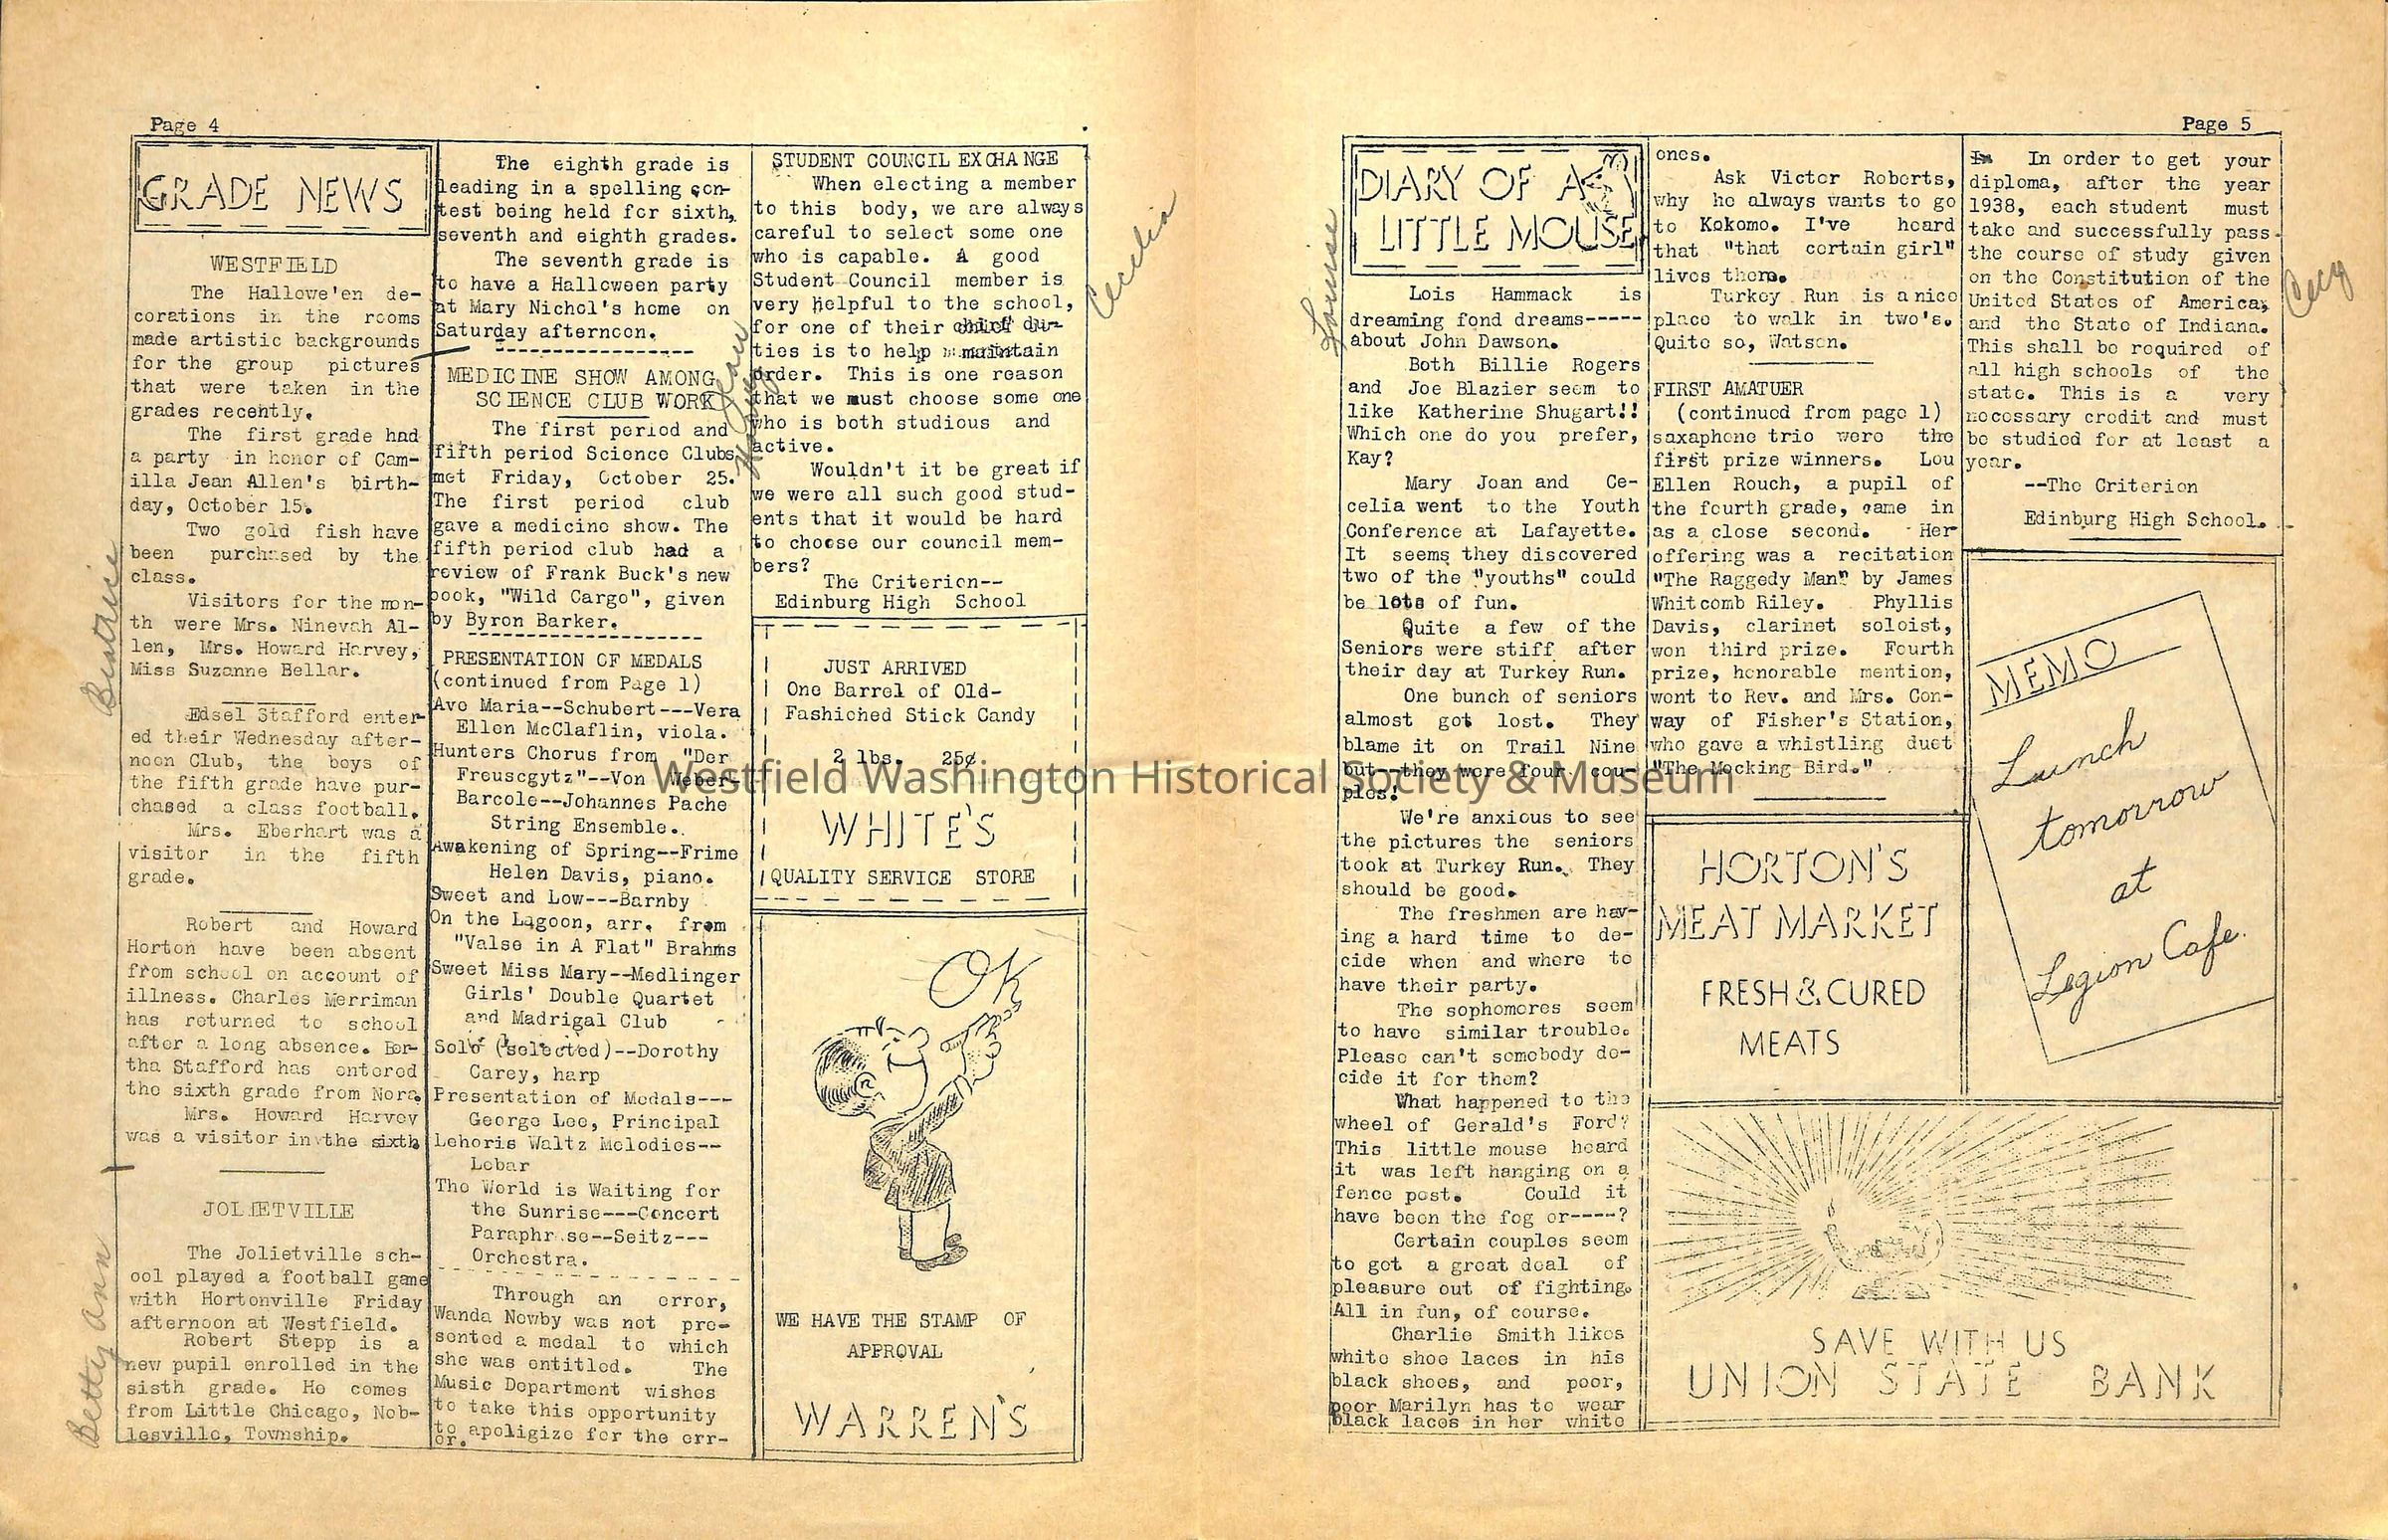 Page 4
GRADE NEWS
WESTFIELD
The Hallowe'en de-
corations in the rooms
made artistic backgrounds
for the group pictures
that were taken in the
grades recently.
The first grade had
a party in honor of Cam-
illa Jean Allen's birth-
day, October 15.
Two gold fish have
been purchased by the
class.
Visitors for the mon-
th were Mrs. Ninevah Al-
len, Mrs. Howard Harvey,
Miss Suzanne Bellar.
Edsel Stafford enter-
ed their Wednesday after-
noon Club, the boys of
the fifth grade have pur-
chased a class football.
Mrs. Eberhart was a
visitor in the fifth
grade.
Robert and Howard
Horton have been absent
from school on account of
illness. Charles Merriman
has returned to school
after a long absence. Ber-
tha Stafford has entered
the sixth grade from Nora.
Mrs. Howard Harvey
was a visitor in the sixth
JOLIETVILLE
The Jolietville sch-
ool played a football game
with Hortonville Friday
afternoon at Westfield.
Robert Stepp is a
new pupil enrolled in the
sisth grade. He comes
from Little Chicago, Nob-
lesville, Township.
Beatrice
Betty Ann
The eighth grade is
leading in a spelling con-
test being held for sixth,
seventh and eighth grades.
The seventh grade is
to have a Halloween party
at Mary Nichol's home on
Saturday afternoon.
MEDICINE SHOW AMONG
SCIENCE CLUB WORK
The first period and
fifth period Science Clubs
met Friday, October 25.
The first period club
gave a medicine show. The
fifth period club had a
review of Frank Buck's new
book, "Wild Cargo", given
by Byron Barker.
PRESENTATION OF MEDALS
(continued from Page 1)
Ave Maria--Schubert---Vera
Ellen McClaflin, viola.
Hunters Chorus from "Der
Freuscgytz"--Von Weber-
Barcole--Johannes Pache
String Ensemble.
Awakening of Spring--Frime
Helen Davis, piano.
Sweet and Low---Barnby
On the Lagoon, arr. from
"Valse in A Flat" Brahms
Sweet Miss Mary--Medlinger
Girls' Double Quartet
and Madrigal Club
Solo (selected)--Dorothy
Carey, harp
Presentation of Medals---
George Lee, Principal
Lehoris Waltz Melodies--
Lebar
The World is Waiting for
the Sunrise---Concert
Paraphr.se--Seitz---
Orchestra.
Through an error,
Wanda Newby was not pre-
sented a medal to which
she was entitled. The
Music Department wishes
to take this opportunity
to apoligize for the err-
or.
STUDENT COUNCIL EXCHANGE
When electing a member
to this body, we are always
careful to select some one
who is capable. A good
Student Council member is
very helpful to the school,
for one of their chief du-
ties is to help maintain
order. This is one reason
that we must choose some one
who is both studious and
active.
Wouldn't it be great if
we were all such good stud-
ents that it would be hard
to choose our council mem-
bers?
The Criterion--
Edinburg High School
Cecelia
JUST ARRIVED
One Barrel of Old-
Fashioned Stick Candy
2 lbs. 25¢
WHITE'S
QUALITY SERVICE STORE
OK
WE HAVE THE STAMP OF
APPROVAL
WARREN'S
Page 5
DIARY OF A
LITTLE MOUSE
Louise
Lois Hammack is
dreaming fond dreams-----
about John Dawson.
Both Billie Rogers
and Joe Blazier seem to
like Katherine Shugart!!
Which one do you prefer,
Kay?
Mary Jean and Ce-
celia went to the Youth
Conference at Lafayette.
It seems they discovered
two of the "youths" could
be lots of fun.
Quite a few of the
Seniors were stiff after
their day at Turkey Run.
One bunch of seniors
almost got lost. They
blame it on Trail Nine
but--they were four cou-
ples!
We're anxious to see
the pictures the seniors
took at Turkey Run. They
should be good.
The freshmen are hav-
ing a hard time to de-
cide when and where to
have their party.
The sophomores seem
to have similar trouble.
Please can't somebody de-
cide it for them?
What happened to the
wheel of Gerald's Ford?
This little mouse heard
it was left hanging on a
fence post. Could it
have been the fog or----?
Certain couples seem
to get a great deal of
pleasure out of fighting.
All in fun, of course.
Charlie Smith likes
white shoe laces in his
black shoes, and poor,
poor Marilyn has to wear
black laces in her white
ones.
Ask Victor Roberts,
why he always wants to go
to Kokomo. I've heard
that "that certain girl"
lives there.
Turkey Run is a nice
place to walk in two's.
Quite so, Watson.
FIRST AMATUER
(continued from page 1)
saxaphone trio were the
first prize winners. Lou
Ellen Rouch, a pupil of
the fourth grade, came in
as a close second. Her
offering was a recitation
"The Raggedy Man" by James
Whitcomb Riley. Phyllis
Davis, clarinet soloist,
won third prize. Fourth
prize, honorable mention,
went to Rev. and Mrs. Con-
way of Fisher's Station,
who gave a whistling duet
"The Mocking Bird."
In In order to get your
diploma, after the year
1938, each student must
take and successfully pass
the course of study given
on the Constitution of the
United States of America,
and the State of Indiana.
This shall be required of
all high schools of the
state. This is a very
necessary credit and must
be studied for at least a
year.
--The Criterion
Edinburg High School.
HORTON'S
MEAT MARKET
FRESH & CURED
MEATS
MEMO
Lunch
tomorrow
at
Legion Cafe.
SAVE WITH US
UNION STATE BANK
Westfield Washington Historical Society & Museum